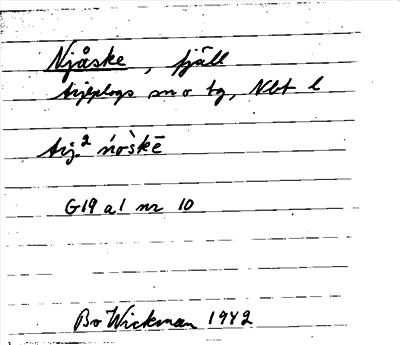 Njåske, fjäll
Arjeplogs sn o tg, Nbt l
Arj.² ńò̀skē
G19 a1 nr 10
Bo Wickman 1942